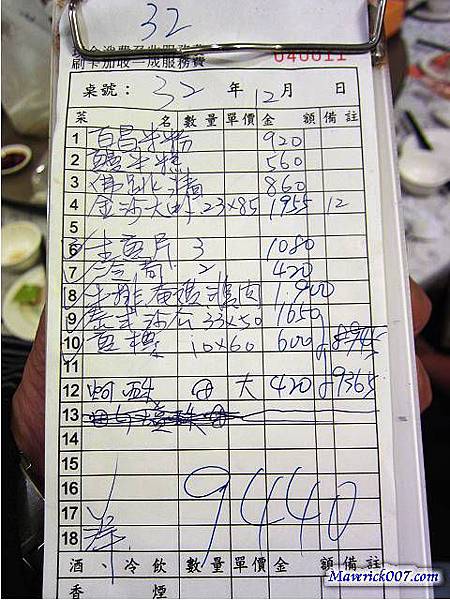 32
刷卡加收一成服務費
040011
桌號: 32 年 12月 日
菜 名 數量 單價 金 額 備註
1 百昌米粉 920
2 鰻米糕 560
3 佛跳牆 860
4 金沙大 23×85 1955 12
5
6 生魚片 3 1080
7 冷筍 2 420
8 1,900
9 泰式沙公 33×50 1650
10 10×60 600 8945
11
12 蚵 大 420 9365
13
14
15
16
17
18
9440
酒、冷飲 數量 單價 金 額 備註
香 煙
Maverick007.com